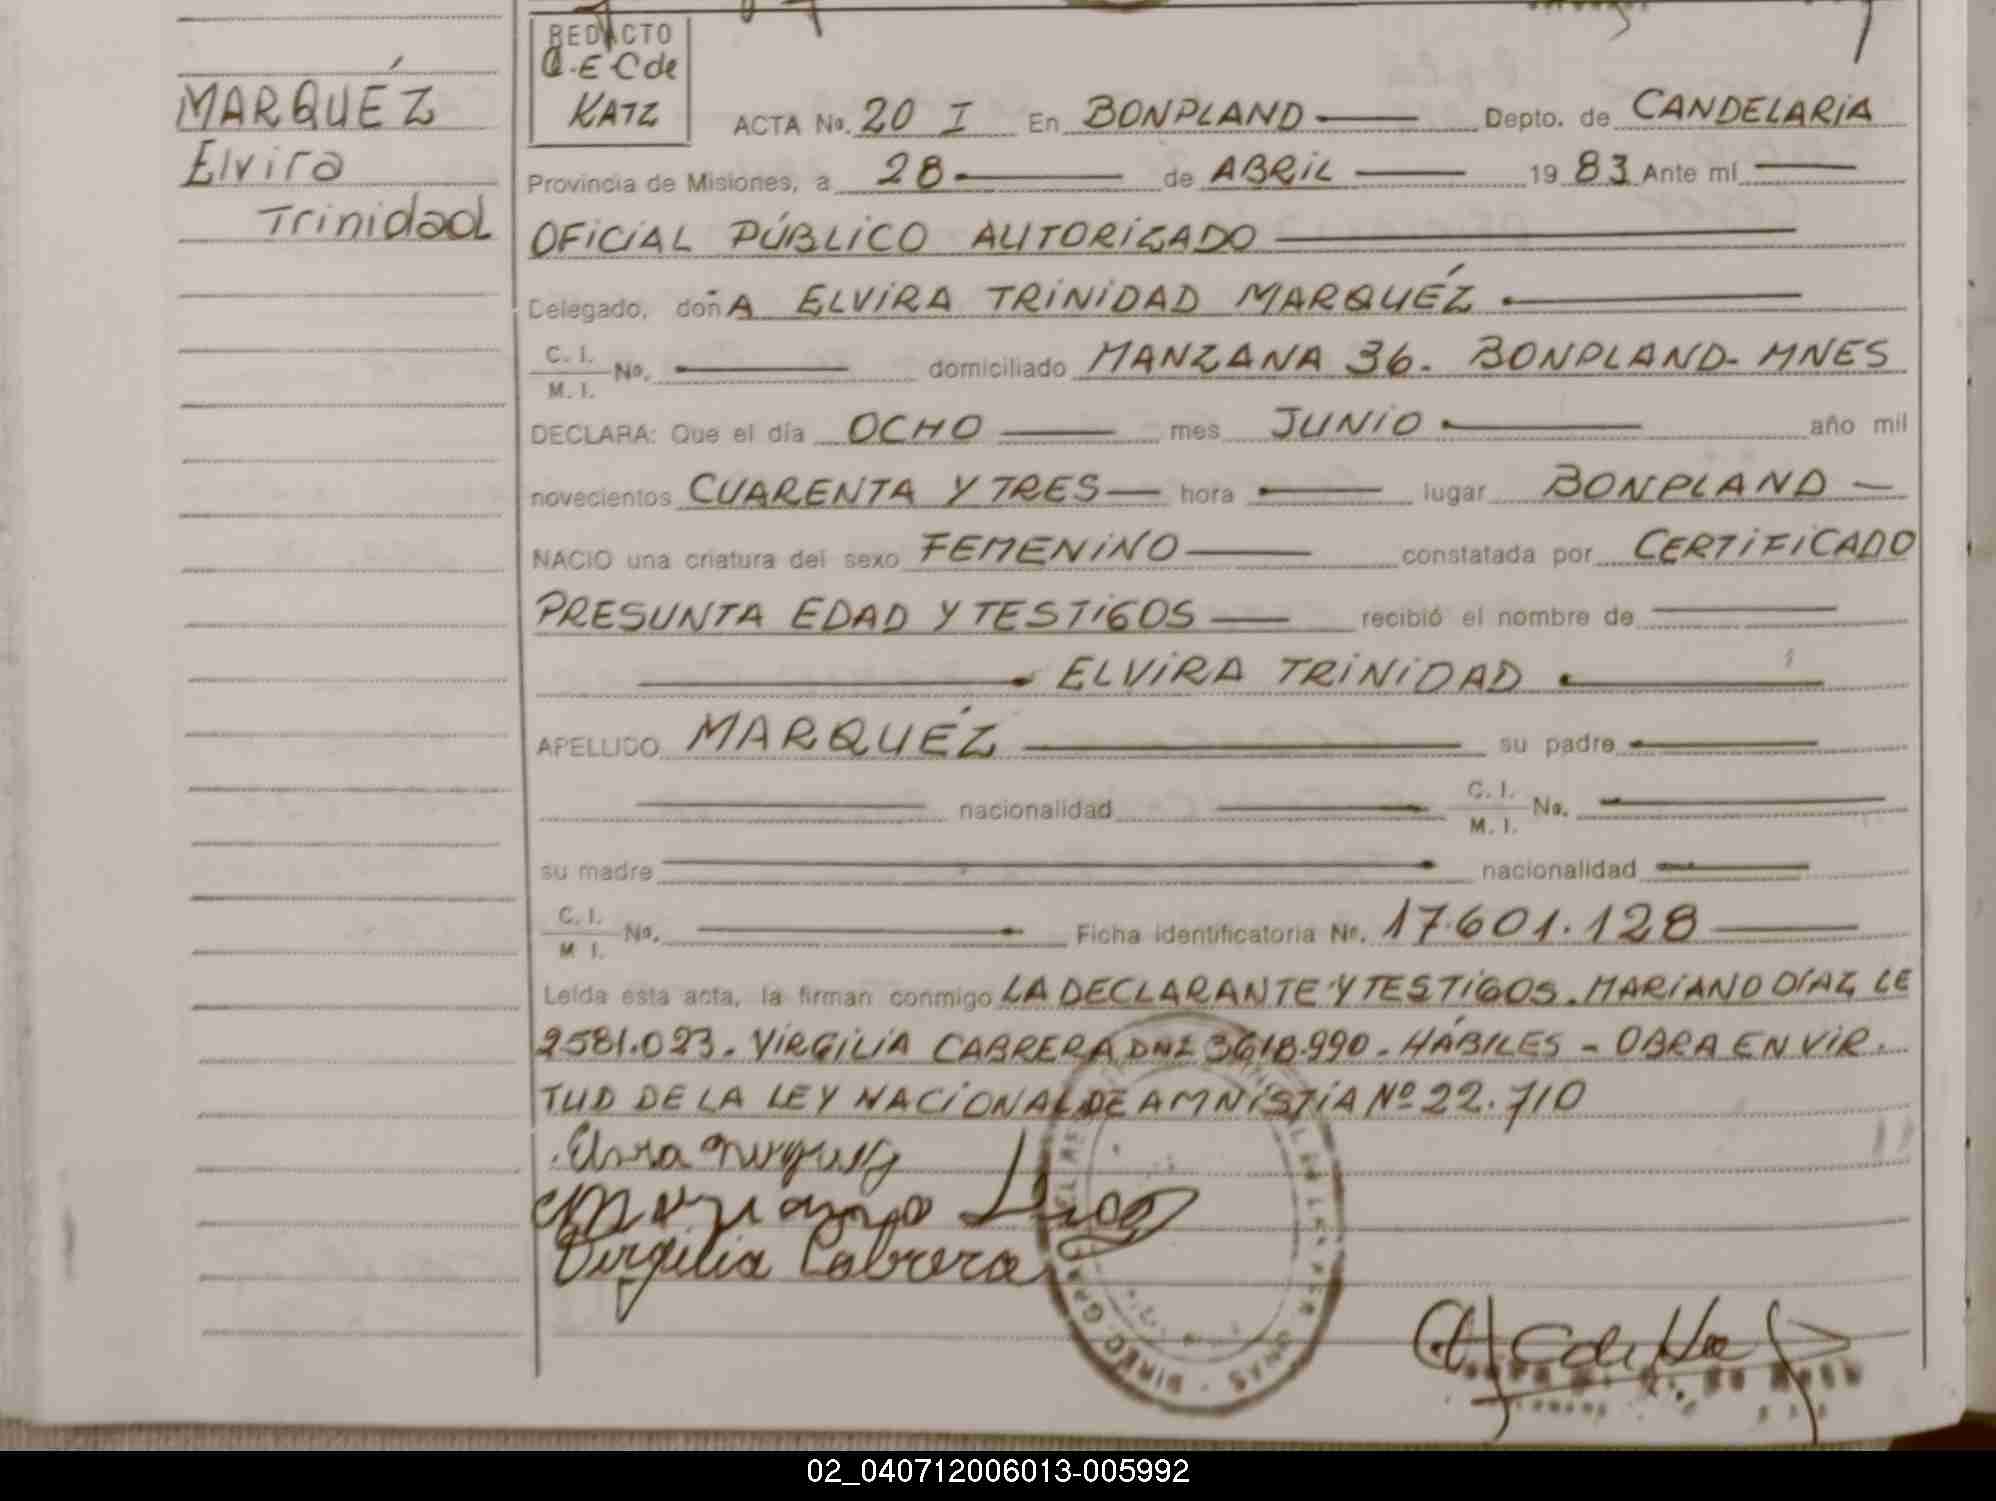 MARQUÉZ
Elvira
Trinidad
REDACTO
C. de
KATZ
ACTA No. 20 I En BONPLAND Depto. de CANDELARIA
Provincia de Misiones, a 28 de ABRIL 1983 Ante mí
OFICIAL PÚBLICO AUTORIZADO
Delegado, doñA ELVIRA TRINIDAD MARQUÉZ
C. I.
M. I. No. domiciliado MANZANA 36. BONPLAND- MNES
DECLARA: Que el día OCHO mes JUNIO año mil
novecientos CUARENTA Y TRES hora lugar BONPLAND
NACIO una criatura del sexo FEMENINO constatada por CERTIFICADO
PRESUNTA EDAD Y TESTIGOS recibió el nombre de
ELVIRA TRINIDAD
APELLIDO MARQUÉZ su padre
nacionalidad C. I. M. I. No.
su madre nacionalidad
C. I. M I. No. Ficha identificatoria No. 17.601.128
Leída esta acta, la firman conmigo LA DECLARANTE Y TESTIGOS. MARIANO DÍAZ LE
2581.023. VIRGILIA CABRERA DNI 3618.990. HÁBILES - OBRA EN VIR.
TUD DE LA LEY NACIONAL DE AMNISTIA Nº 22.710
Mariano Diaz
Virgilia Cabrera
02_040712006013-005992